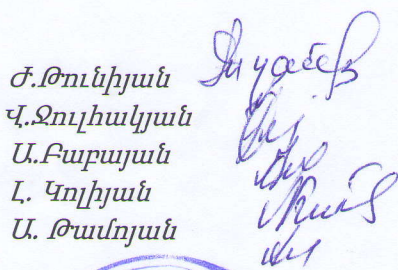 Ժ.Թունիյան
Վ.Ջուլհակյան
Ա.Բաբայան
Լ. Կոլիյան
Ա. Թամոյան